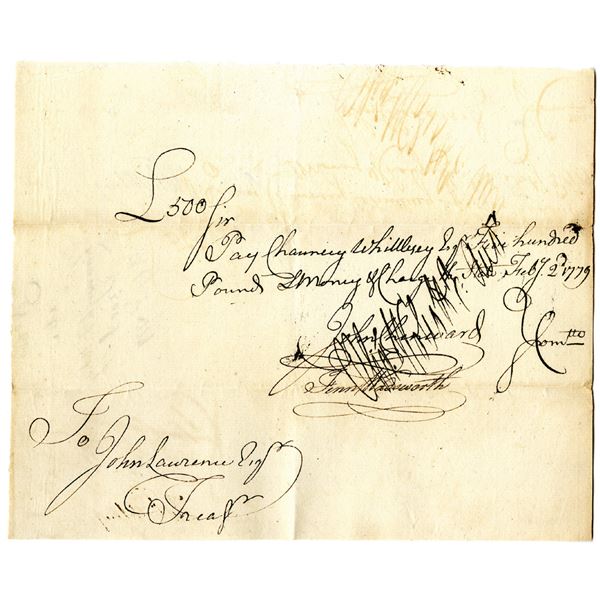 £500 Sir
Pay Chauncey Whittlesey Esqr Five hundred
Pounds L Money & Charge the State Feby. 2d 1779
John Chenward
Fenn Wadsworth
Comtto
To
John Lawrence Esqr
Treasr